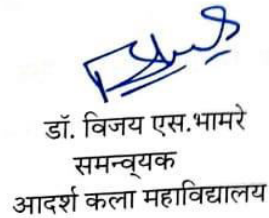 डॉ. विजय एस.भामरे
समन्व्यक
आदर्श कला महाविद्यालय